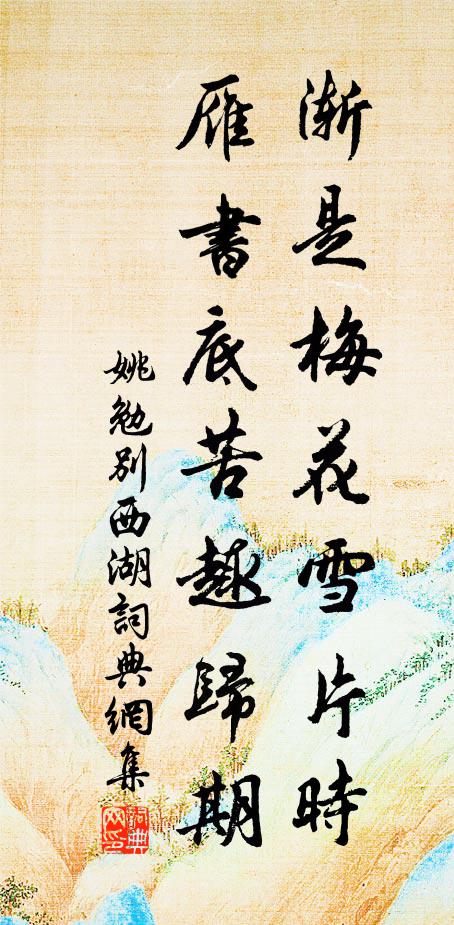 漸是梅花雪片時
雁書底苦趣歸期
姚勉別西湖詞典網集
詞典網印